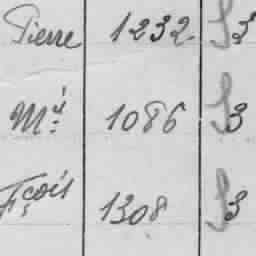 Pierre 1232. S3
Mie 1086 S3
Fçois 1308 S3